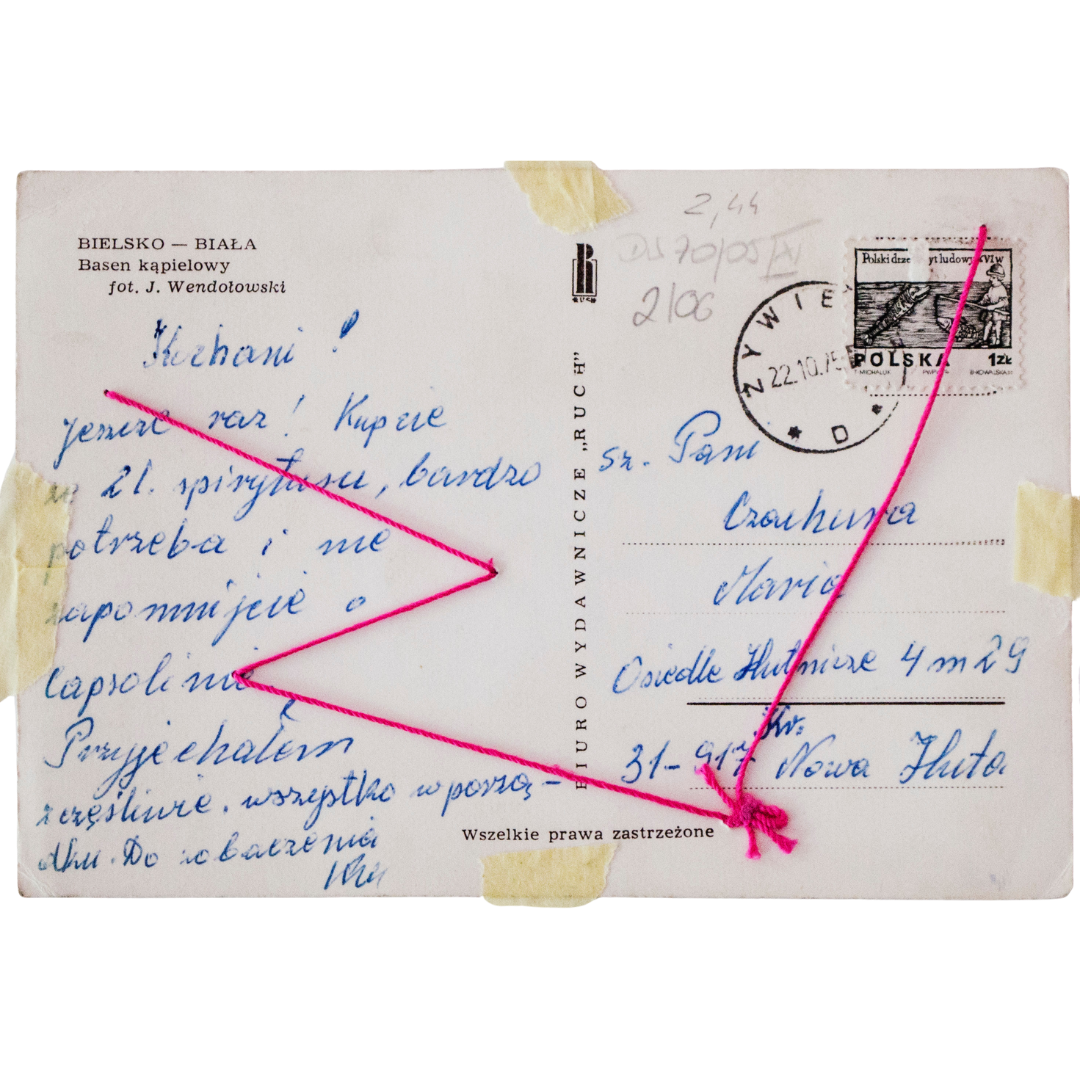 BIELSKO — BIAŁA
Basen kąpielowy
fot. J. Wendołowski
Kochani!
Jeszcze raz! Kupcie
ze 2l. spirytusu, bardzo
potrzeba i nie
zapomnijcie o
Capsolinie
Przyjechałem
szczęśliwie. wszystko w porzą-
dku. Do zobaczenia
BIURO WYDAWNICZE „RUCH"
RUCH
Wszelkie prawa zastrzeżone
2,44
2/06
ŻYWIEC
22.10.75
D
Polski drze yt ludowy XVI w
POLSKA 1ZŁ
Sz. Pani
Czachura
Maria
Osiedle Hutnicze 4 m 29
Kr.
31-917 Nowa Huta